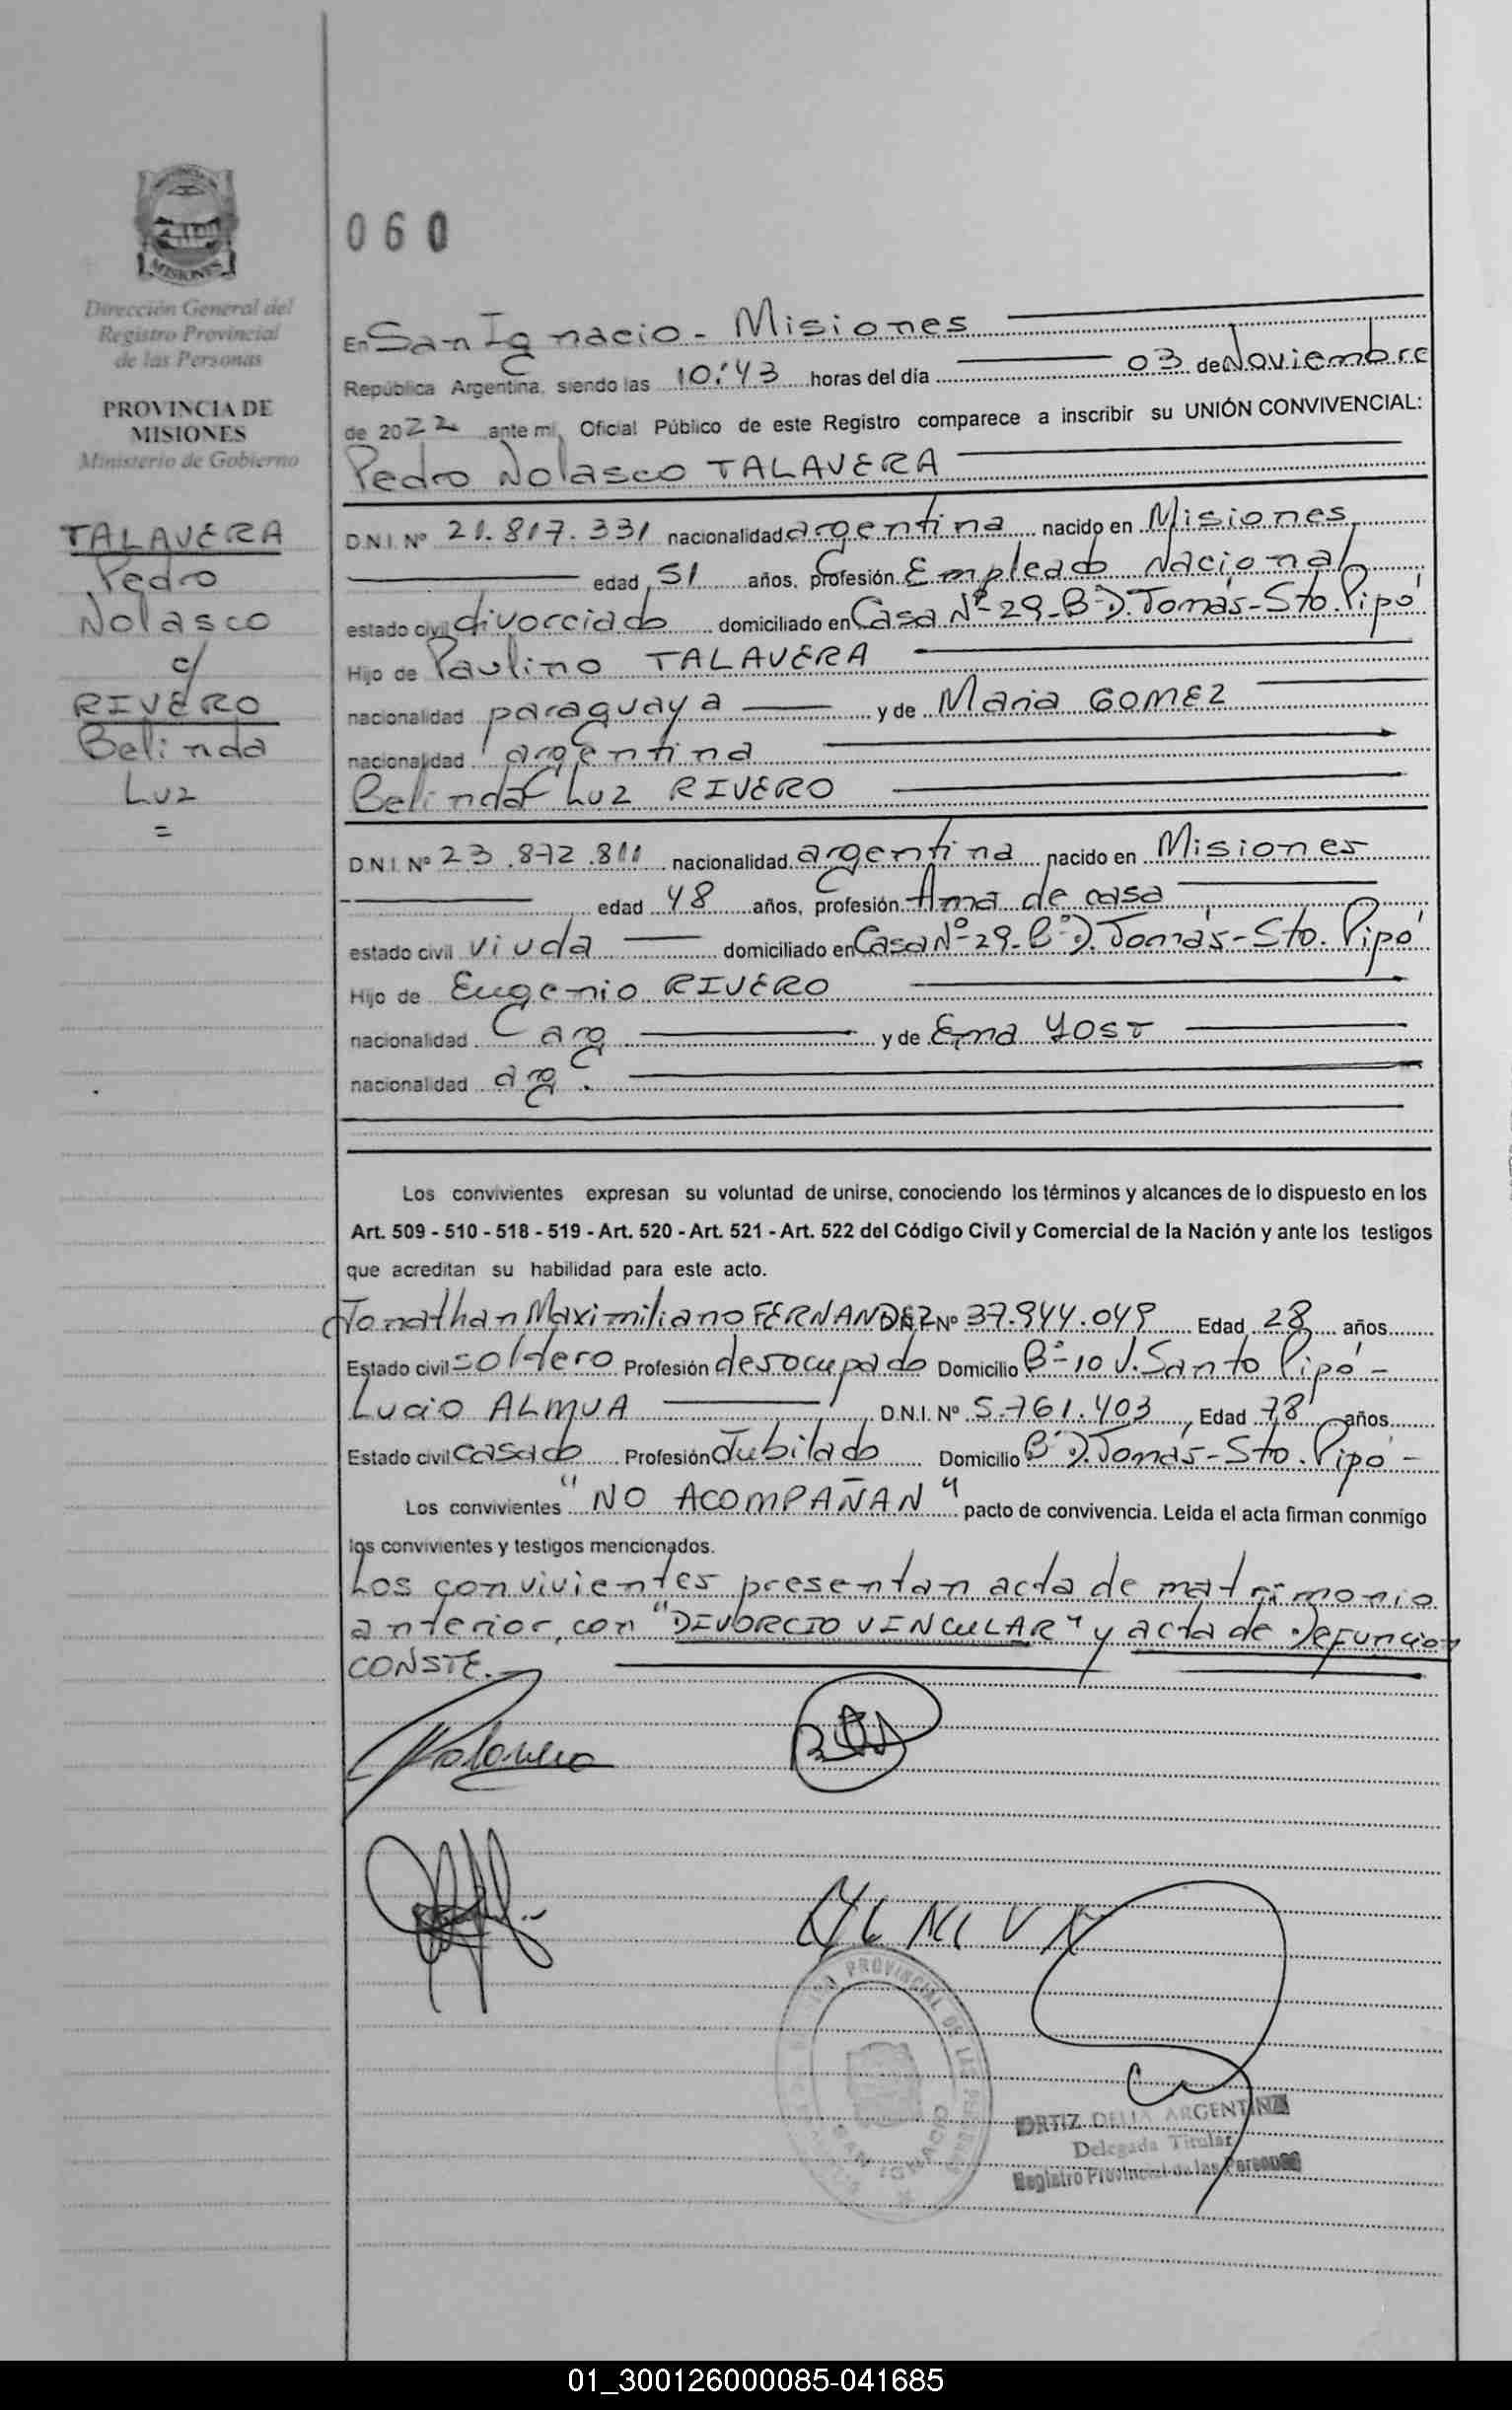 MISIONES
Dirección General del
Registro Provincial
de las Personas
PROVINCIA DE
MISIONES
Ministerio de Gobierno
TALAVERA
Pedro
Nolasco
c/
RIVERO
Belinda
Luz
=
060
En San Ignacio - Misiones
República Argentina, siendo las 10:43 horas del día 03 de Noviembre
de 2022 ante mí, Oficial Público de este Registro comparece a inscribir su UNIÓN CONVIVENCIAL:
Pedro Nolasco TALAVERA
D.N.I. Nº 21.817.331 nacionalidad argentina nacido en Misiones
edad 51 años, profesión Empleado Nacional
estado civil divorciado domiciliado en Casa Nº 29-Bº D. Tomás-Sto. Pipó
Hijo de Paulino TALAVERA
nacionalidad paraguaya y de Maria GOMEZ
nacionalidad argentina
Belinda Luz RIVERO
D.N.I. Nº 23.872.811 nacionalidad argentina nacido en Misiones
edad 48 años, profesión Ama de casa
estado civil viuda domiciliado en Casa Nº 29-Bº D. Tomás-Sto. Pipó
Hijo de Eugenio RIVERO
nacionalidad arg y de Ema YOST
nacionalidad arg.
Los convivientes expresan su voluntad de unirse, conociendo los términos y alcances de lo dispuesto en los
Art. 509 - 510 - 518 - 519 - Art. 520 - Art. 521 - Art. 522 del Código Civil y Comercial de la Nación y ante los testigos
que acreditan su habilidad para este acto.
Jonathan Maximiliano FERNANDEZ Nº 37.944.049 Edad 28 años
Estado civil soltero Profesión desocupado Domicilio Bº 10 V. Santo Pipó -
Lucio ALMUA D.N.I. Nº 5.761.403, Edad 78 años
Estado civil casado Profesión Jubilado Domicilio Bº D. Tomás-Sto. Pipó -
Los convivientes "NO ACOMPAÑAN" pacto de convivencia. Leída el acta firman conmigo
los convivientes y testigos mencionados.
Los convivientes presentan acta de matrimonio
anterior, con "DIVORCIO VINCULAR" y acta de Defuncion
CONSTE.
Talavera
PROVINCIAL DE LAS PERSONAS
SAN IGNACIO
ORTIZ DELIA ARGENTINA
Delegada Titular
Registro Provincial de las Personas
01_300126000085-041685